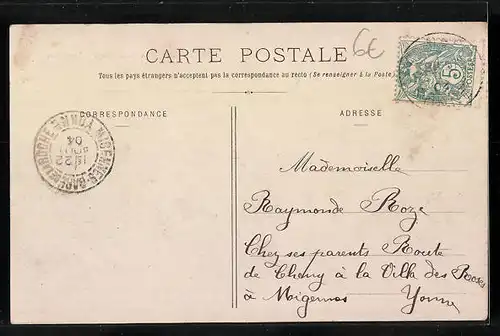 6€
CARTE POSTALE
Tous les pays étrangers n'acceptent pas la correspondance au recto (Se renseigner à la Poste)
5
CORRESPONDANCE
ADRESSE
YONNE
15 22
04
Mademoiselle
Raymonde Roze
Chez ses parents Route
de Cheny à la Villa des Roses
à Migennes Yonne